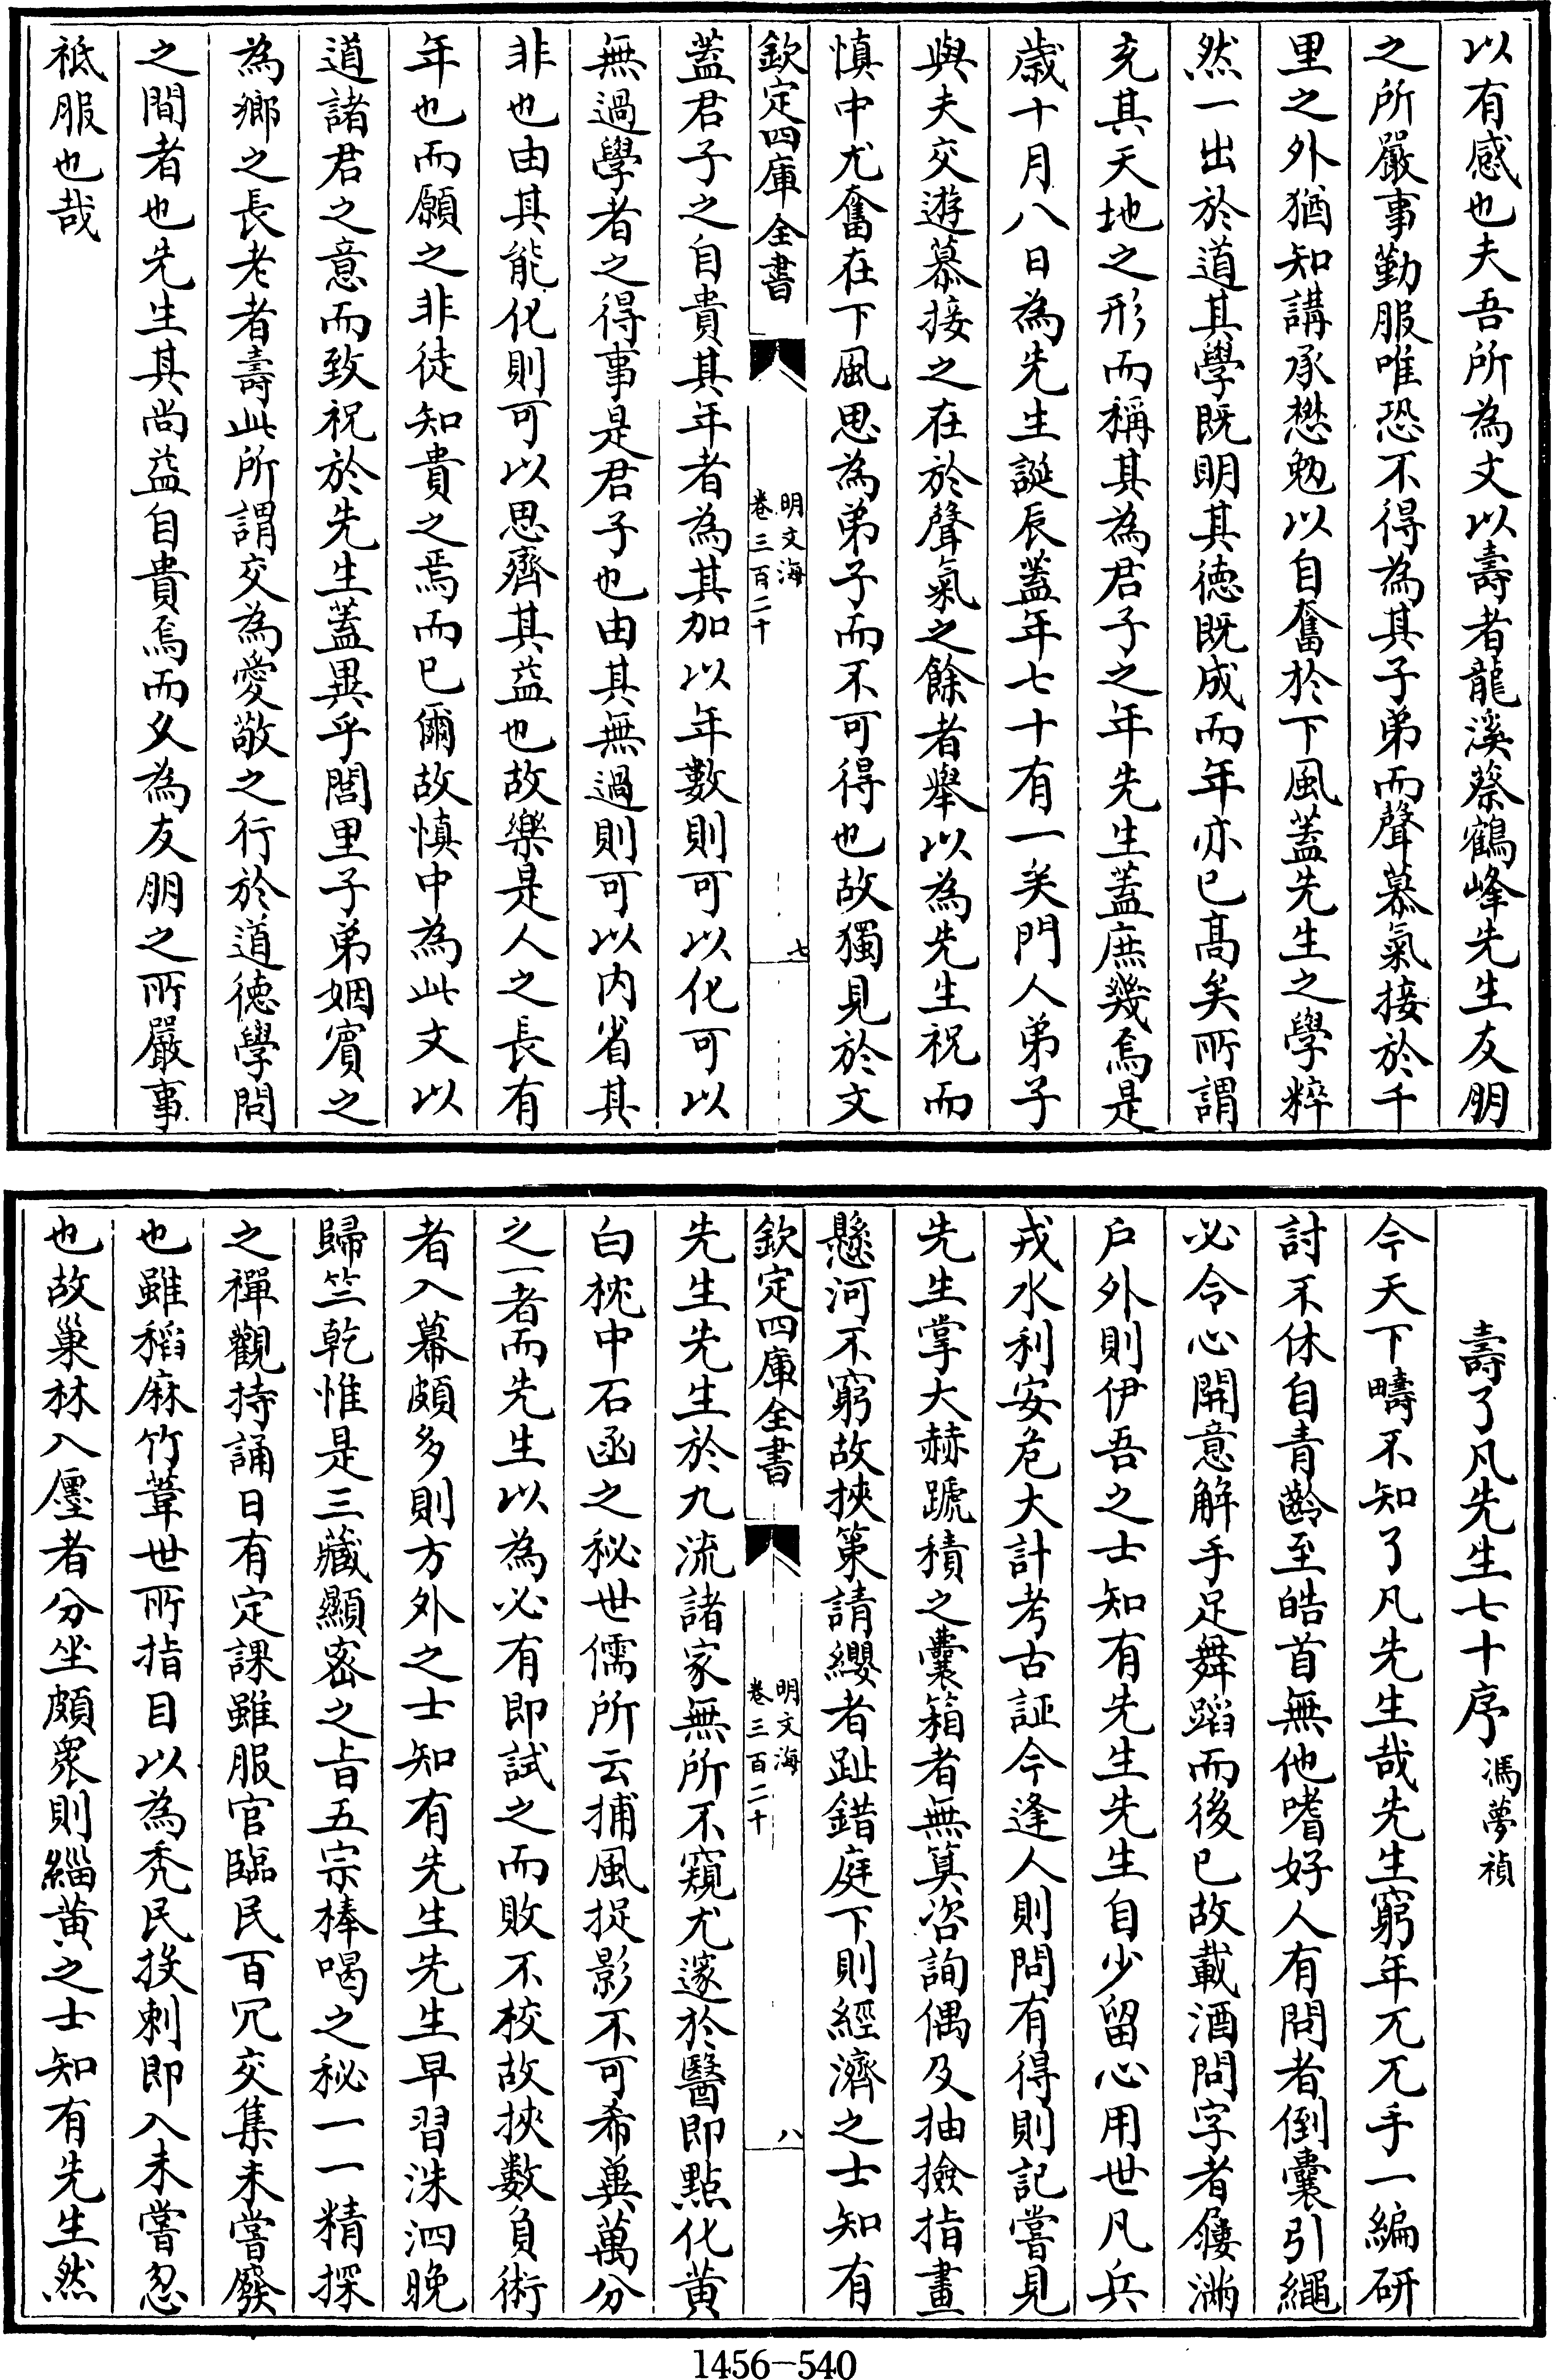 以有感也夫吾所為文以壽者龍溪蔡鶴峰先生友朋
之所嚴事勤服唯恐不得為其子弟而聲慕氣接於千
里之外猶知講承懋勉以自奮於下風蓋先生之學粹
然一出於道其學既明其德既成而年亦已髙矣所謂
充其天地之形而稱其為君子之年先生蓋庶幾焉是
歲十月八日為先生誕辰蓋年七十有一矣門人弟子
與夫交遊慕接之在於聲氣之餘者舉以為先生祝而
慎中尤奮在下風思為弟子而不可得也故獨見於文
欽定四庫全書
明文海
卷三百二十
七
蓋君子之自貴其年者為其加以年數則可以化可以
無過學者之得事是君子也由其無過則可以内省其
非也由其能化則可以思齊其益也故樂是人之長有
年也而願之非徒知貴之焉而已爾故慎中為此文以
道諸君之意而致祝於先生蓋異乎閭里子弟姻賓之
為鄉之長老者壽此所謂交為愛敬之行於道德學問
之間者也先生其尚益自貴焉而久為友朋之所嚴事
祗服也哉
壽了凡先生七十序 馮夢禎
今天下疇不知了凡先生哉先生窮年兀兀手一編研
討不休自青齡至皓首無他嗜好人有問者倒囊引繩
必令心開意解手足舞蹈而後已故載酒問字者屨滿
戶外則伊吾之士知有先生先生自少留心用世凡兵
戎水利安危大計考古証今逢人則問有得則記嘗見
先生掌大赫蹏積之囊箱者無筭咨詢偶及抽撿指畫
懸河不窮故挾策請纓者趾錯庭下則經濟之士知有
欽定四庫全書
明文海
卷三百二十
八
先生先生於九流諸家無所不窺尤邃於醫即點化黄
白枕中石函之秘世儒所云捕風捉影不可希兾萬分
之一者而先生以為必有即試之而敗不校故挾數負術
者入幕頗多則方外之士知有先生先生早習洙泗晚
歸竺乾惟是三藏顯密之旨五宗棒喝之秘一一精探
之禪觀持誦日有定課雖服官臨民百冗交集未嘗廢
也雖稻麻竹葦世所指目以為秃民挨刺即入未嘗忽
也故巢林入㕓者分坐頗衆則緇黄之士知有先生然
1456-540